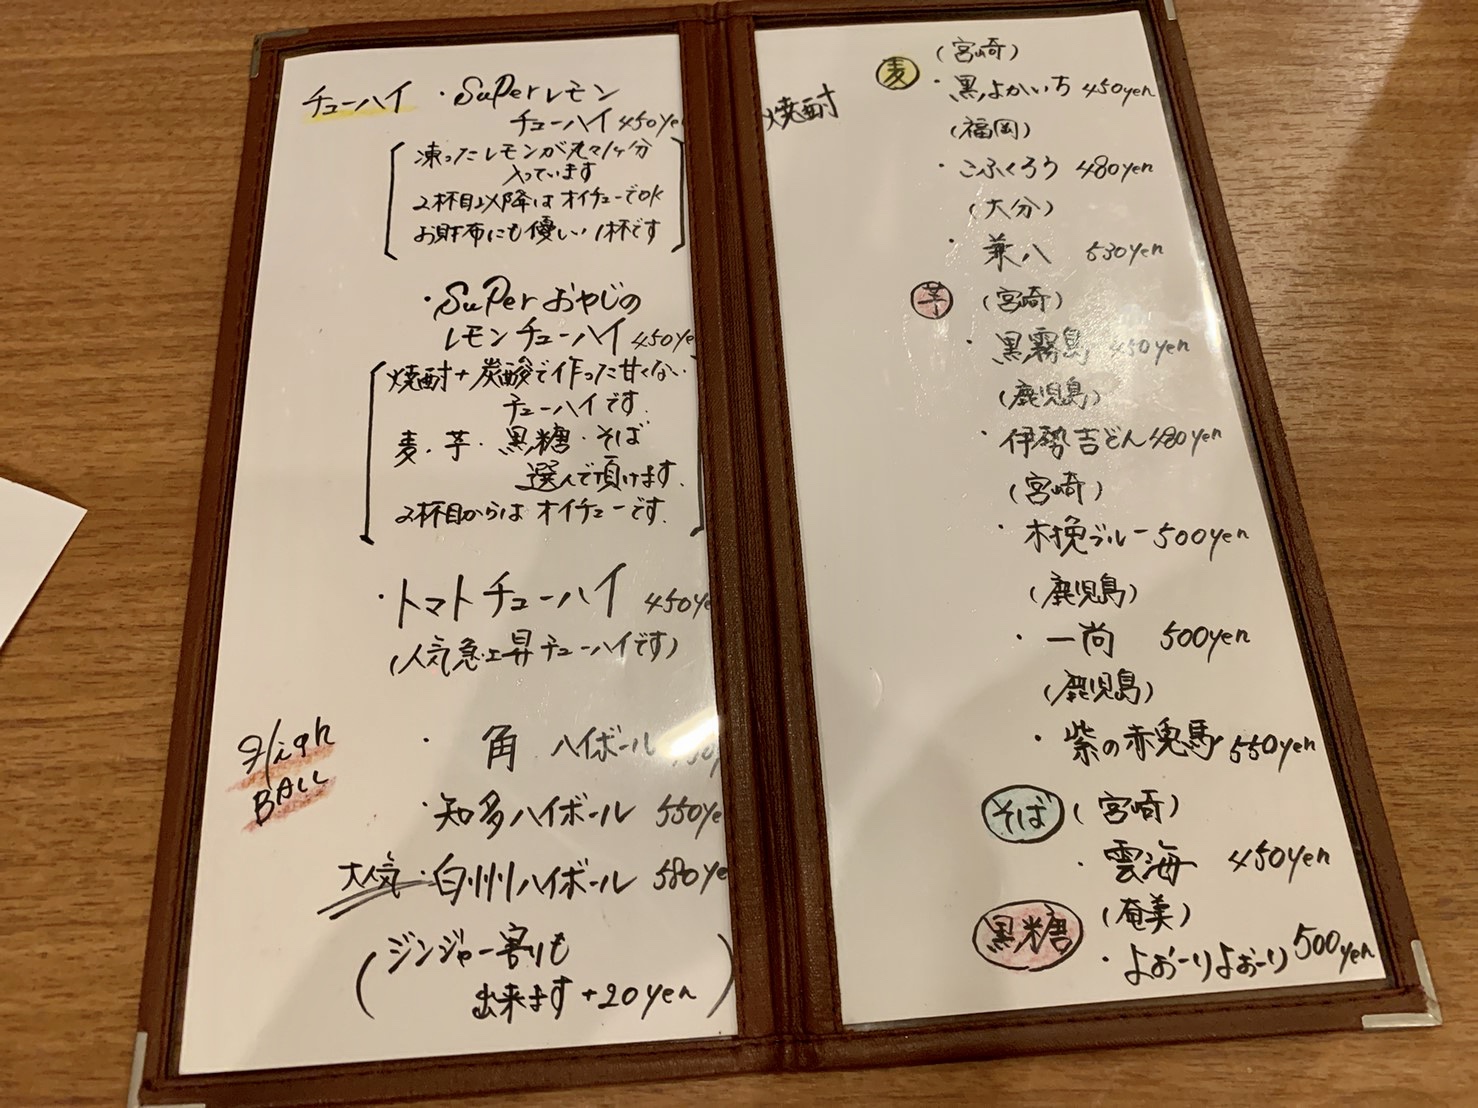 チューハイ ・Superレモン
チューハイ 450ye
凍ったレモンが丸々1ヶ分
入っています
2杯目以降はオイチューでOK
お財布にも優しい1杯です
・Superおやじの
レモンチューハイ 450ye
焼酎+炭酸で作った甘くない
チューハイです.
麦・芋・黒糖・そば
選んで頂けます.
2杯目からはオイチューです.
・トマトチューハイ 450ye
(人気急上昇チューハイです)
High
BALL
・角 ハイボール
・知多ハイボール 550ye
大人気・白州ハイボール 580ye
(ジンジャー割りも
出来ます +20yen)
焼酎
麦 (宮崎)
・黒よかいち 450yen
(福岡)
・こふくろう 480yen
(大分)
・兼八 530yen
芋 (宮崎)
・黒霧島 450yen
(鹿児島)
・伊勢吉どん 480yen
(宮崎)
・木挽ブルー 500yen
(鹿児島)
・一尚 500yen
(鹿児島)
・紫の赤兎馬 550yen
そば (宮崎)
・雲海 450yen
黒糖 (奄美)
・よおーりよおーり 500yen